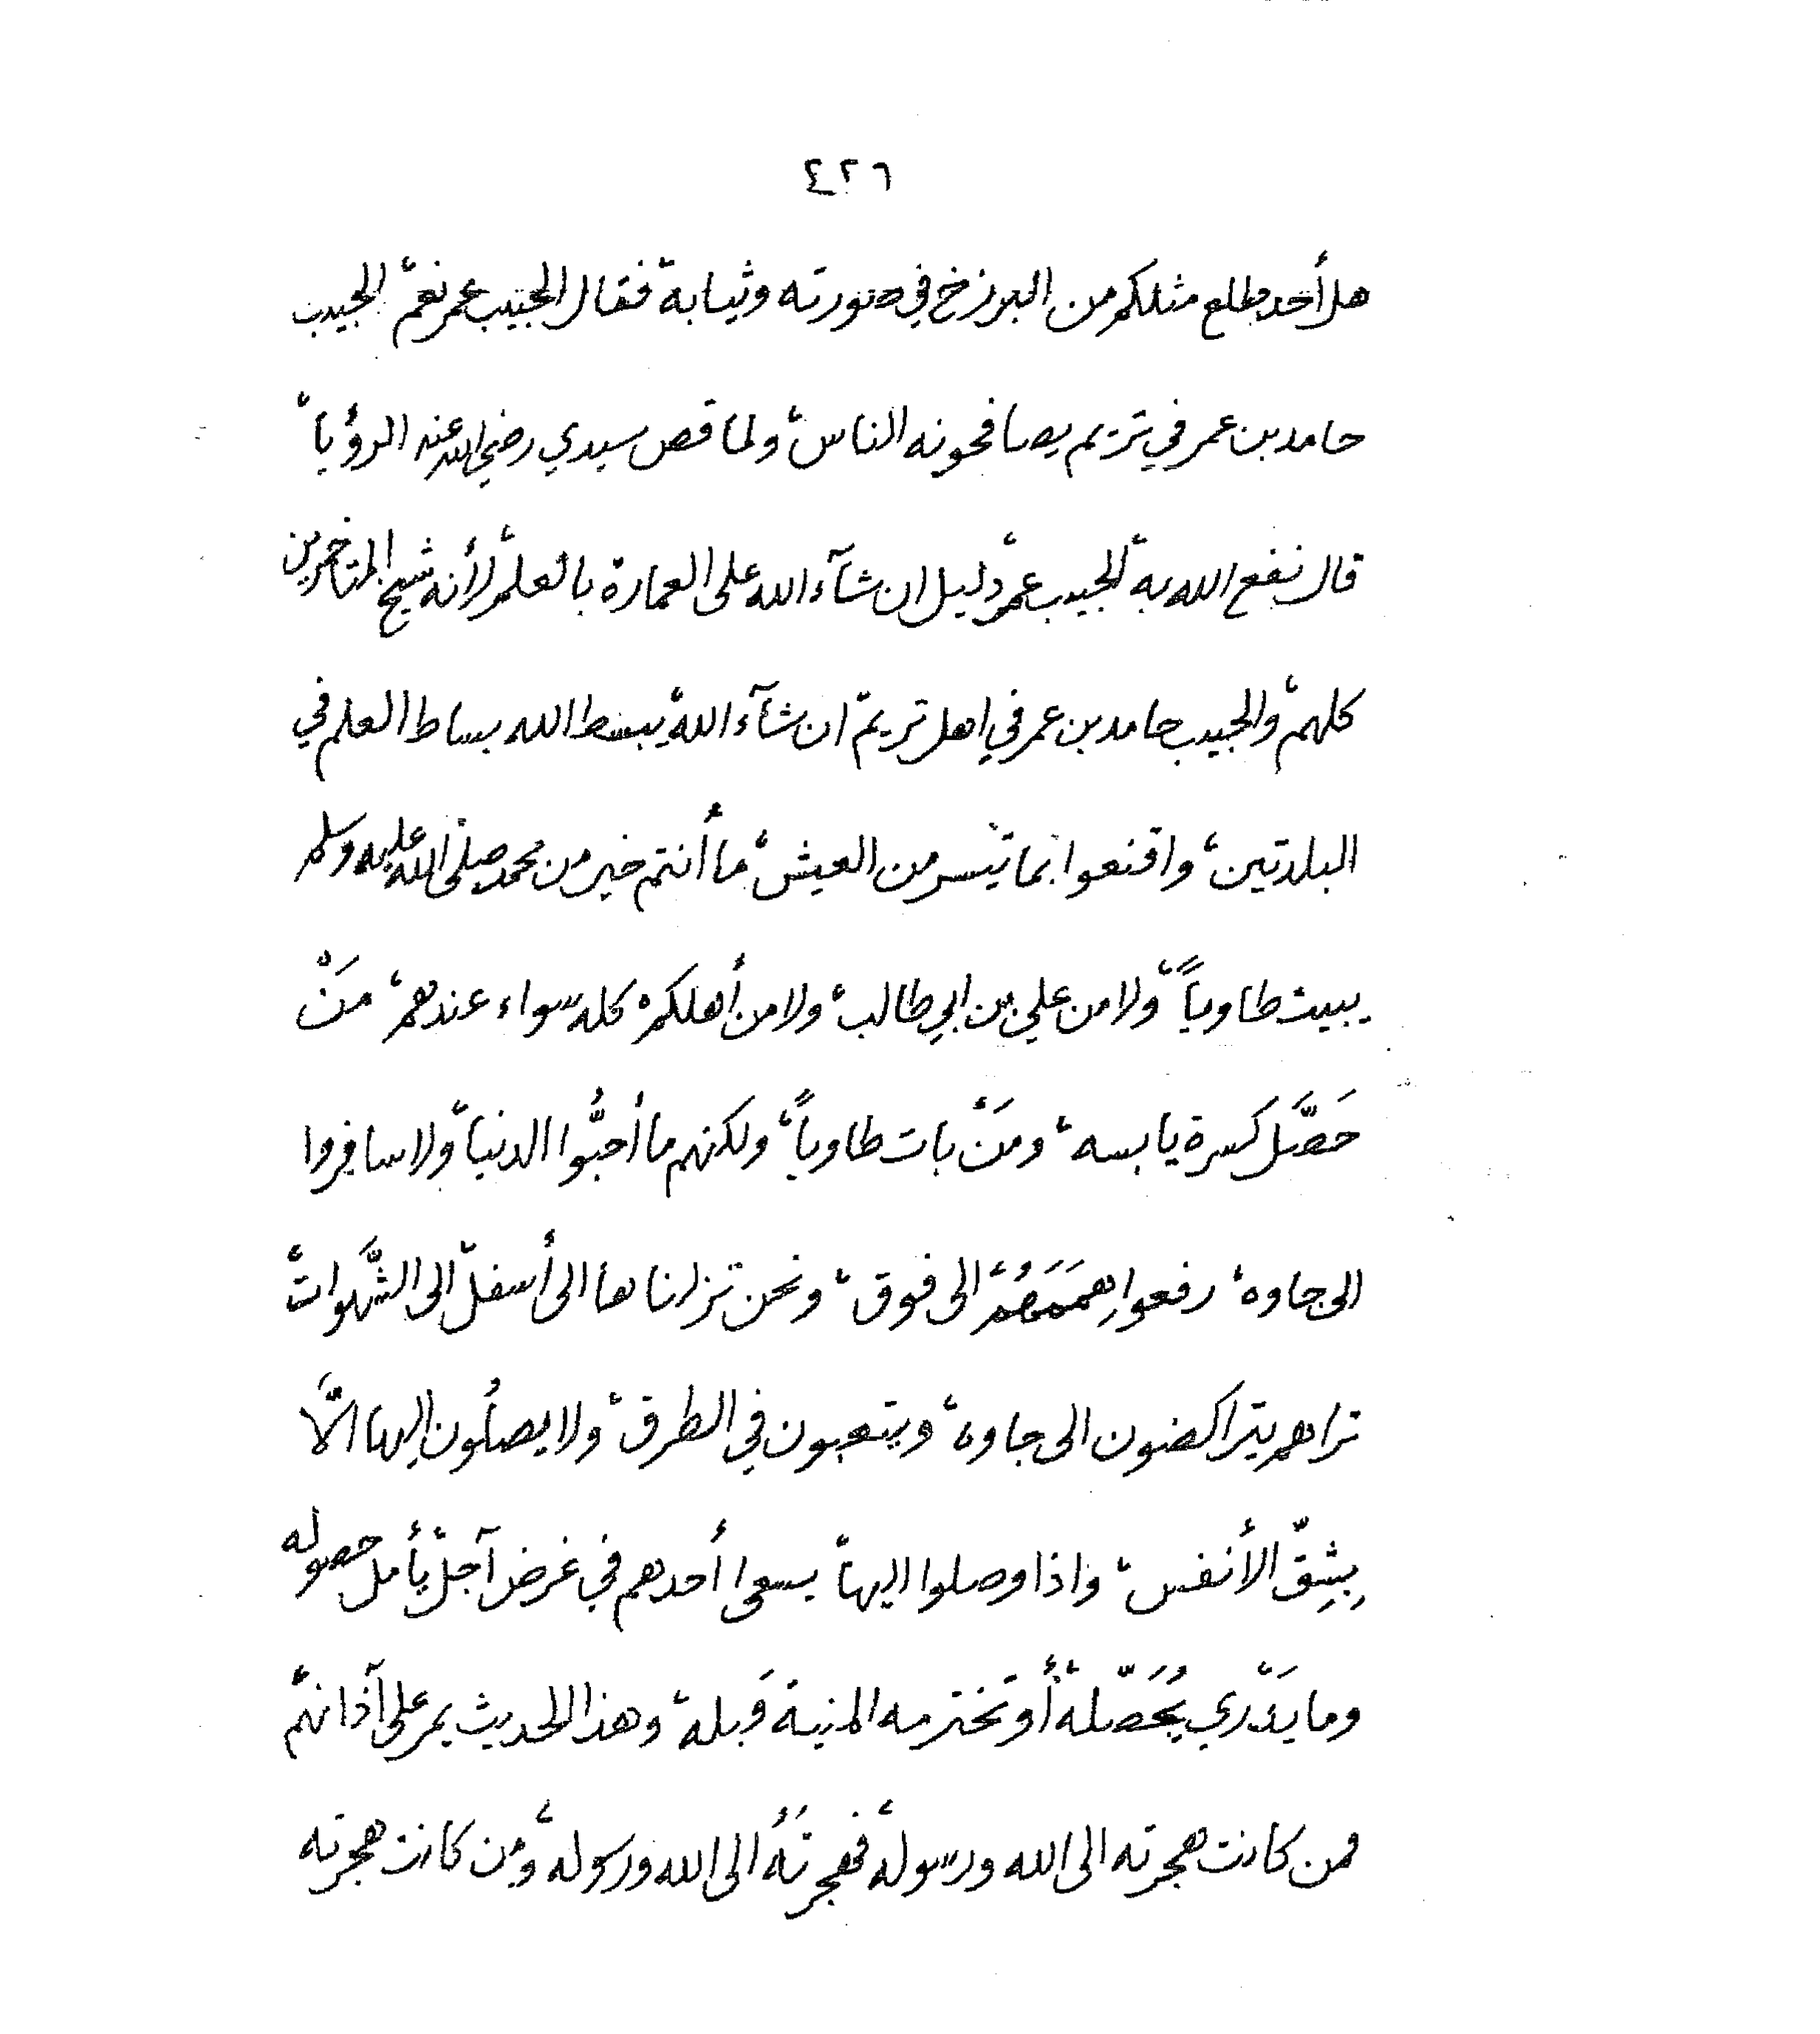 ٤٢٦
هل أحد مطلع مثلكم من البرزخ في صورته وثيابه، فقال الحبيب عمر نعم، الحبيب
حامد بن عمر في تريم يصافحونه الناس، ولما قص سيدي رضي الله عنه الرؤيا،
قال نفع الله به، الحبيب عمر، دليل ان شآء الله على العمارة بالعلم، لأنه شيخ المتأخرين
كلهم، والحبيب حامد بن عمر في اهل تريم، ان شآء الله، يبسط الله بساط العلم في
البلدتين، واقنعوا بما تيسر من العيش، ما أنتم خير من محمد صلى الله عليه وسلم
يبيت طاوياً، ولا من علي بن ابي طالب، ولا من أهلكم، كله سواء عندهم، مَنْ
حَصَّل كسرة يابسه، ومَنْ بات طاوياً، ولكنهم ما أحبُّوا الدنيا، ولا سافروا
الى جاوه، رفعوا هِمَمَهُمْ، الى فوق، ونحن نزلناها الى أسفل، الى الشَّهوات،
تراهم يتراكضون الى جاوه، ويتعبون في الطرق، ولا يصلُون إليها الَّا
بِشِقّ الأنفس، واذا وصلوا اليها، يسعى أحدهم في غرض آجل، يأمل حصوله
وما يَدْري يُحَصّله، أو تخترمه المنية قَبله، وهذا الحديث يمر على آذانهم،
فمن كانت هجرته الى الله ورسوله، فهجرتُه الى الله ورسوله، ومن كانت هجرته